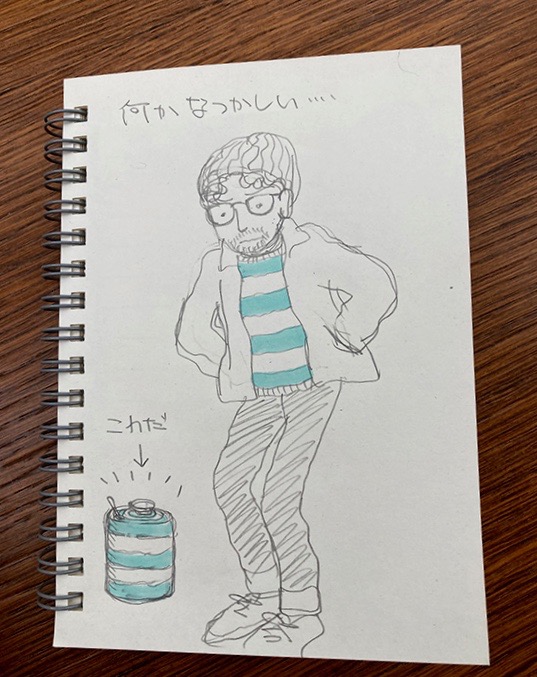 何かなつかしい….
これだ